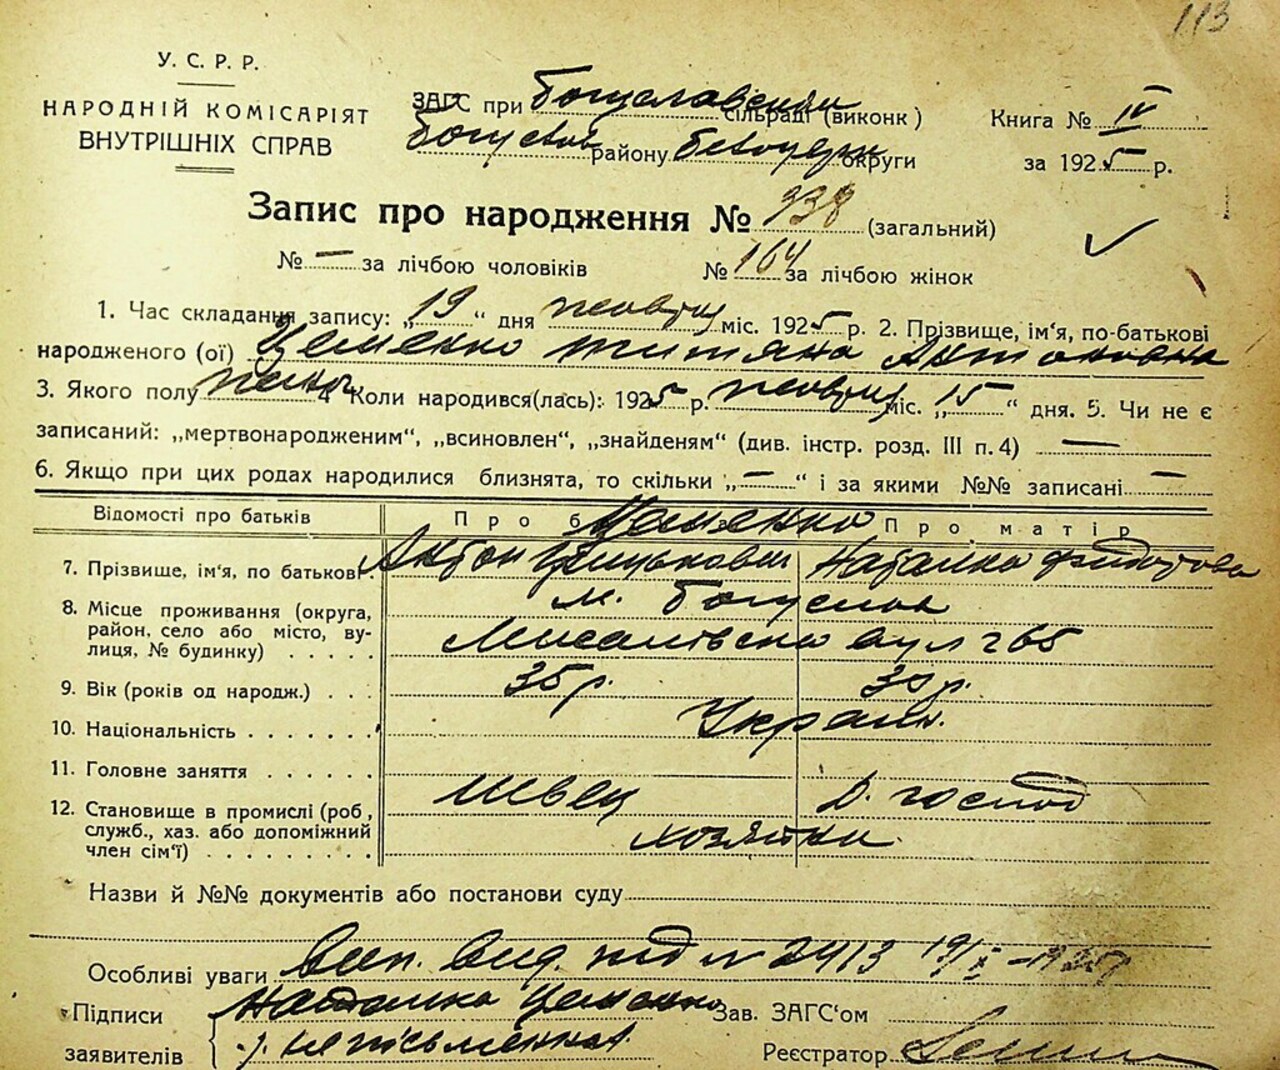 113
У. С. Р. Р.
НАРОДНІЙ КОМІСАРІЯТ
ВНУТРІШНІХ СПРАВ
ЗАГС при Богуславськім сільраді (виконк)
Богуслав району Білоцерк округи
Книга № IV
за 1925 р.
Запис про народження № 338 (загальний)
№ — за лічбою чоловіків № 164 за лічбою жінок
1. Час складання запису: „19“ дня жовтня міс. 1925 р. 2. Прізвище, ім‘я, по-батькові
народженого (ої) Цеменко Титяна Антоновна
3. Якого полу жіноч. 4. Коли народився(лась): 1925 р. жовтня міс. „15“ дня. 5. Чи не є
записаний: „мертвонародженим“, „всиновлен“, „знайденям“ (див. інстр. розд. III п. 4) —
6. Якщо при цих родах народилися близнята, то скільки „—“ і за якими №№ записані —
Відомості про батьків Про Цеменко Про матір
7. Прізвище, ім‘я, по батькові Антон Грицькович Наталка
8. Місце проживання (округа, м. Богуслав
район, село або місто, ву-
лиця, № будинку) . . . . . вул 265
9. Вік (років од народж.) . . . 35 р. 30 р.
10. Національність . . . . . . . Україн.
11. Головне заняття . . . . . .
швец Д. господ
12. Становище в промислі (роб,
служб., хаз. або допоміжний хозяйка
член сім‘ї) . . . . . . . . .
Назви й №№ документів або постанови суду
Особливі уваги Вип. вид. під № 2413 19/X–1925
Підписи Наталка Цеменко Зав. ЗАГС‘ом
заявителів неписьменная Реєстратор